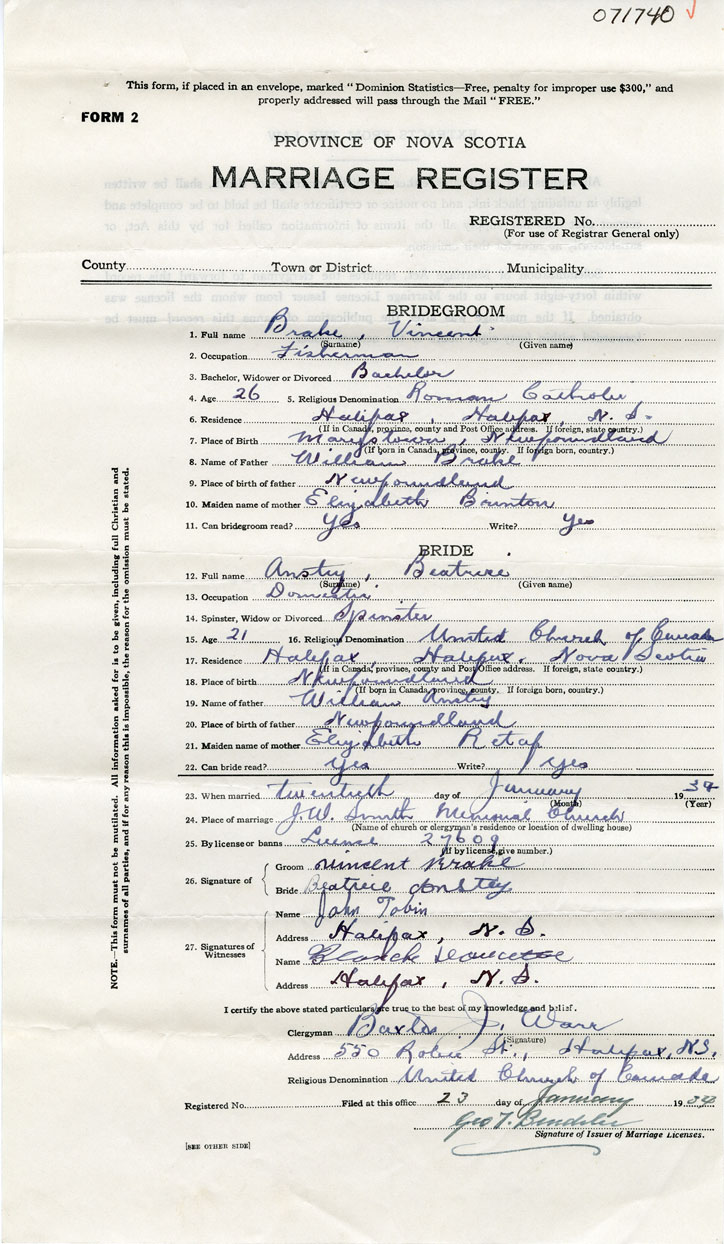 071740
This form, if placed in an envelope, marked "Dominion Statistics—Free, penalty for improper use $300," and
properly addressed will pass through the Mail "FREE."
FORM 2
PROVINCE OF NOVA SCOTIA
MARRIAGE REGISTER
REGISTERED No.
(For use of Registrar General only)
County Town or District Municipality
BRIDEGROOM
1. Full name Brake, Vincent
(Surname) (Given name)
2. Occupation Fisherman
3. Bachelor, Widower or Divorced Bachelor
4. Age 26 5. Religious Denomination Roman Catholic
6. Residence Halifax, Halifax, N. S.
(If in Canada, province, county and Post Office address. If foreign, state country.)
7. Place of Birth Marystown, Newfoundland
(If born in Canada, province, county. If foreign born, country.)
8. Name of Father William Brake
9. Place of birth of father Newfoundland
10. Maiden name of mother Elizabeth
11. Can bridegroom read? Yes Write? Yes
BRIDE
12. Full name Anstey, Beatrice
(Surname) (Given name)
13. Occupation Domestic
14. Spinster, Widow or Divorced Spinster
15. Age 21 16. Religious Denomination United Church of Canada
17. Residence Halifax, Halifax, Nova Scotia
(If in Canada, province, county and Post Office address. If foreign, state country.)
18. Place of birth Newfoundland
(If born in Canada, province, county. If foreign born, country.)
19. Name of father William Anstey
20. Place of birth of father Newfoundland
21. Maiden name of mother Elizabeth
22. Can bride read? Yes Write? Yes
23. When married twentieth day of January 1934
(Month) (Year)
24. Place of marriage J.W. Smith Memorial Church
(Name of church or clergyman's residence or location of dwelling house)
25. By license or banns License 27609
(If by license, give number.)
26. Signature of
Groom Vincent Brake
Bride Beatrice Anstey
27. Signatures of Witnesses
Name John Tobin
Address Halifax, N. S.
Name Blanch
Address Halifax, N.S.
I certify the above stated particulars are true to the best of my knowledge and belief.
Clergyman J.
(Signature)
Address 550 Robie St., Halifax, N.S.
Religious Denomination United Church of Canada
Registered No. Filed at this office 23 day of January 1934
Geo T.
Signature of Issuer of Marriage Licenses.
[SEE OTHER SIDE]
NOTE.—This form must not be mutilated. All information asked for is to be given, including full Christian and
surnames of all parties, and if for any reason this is impossible, the reason for the omission must be stated.